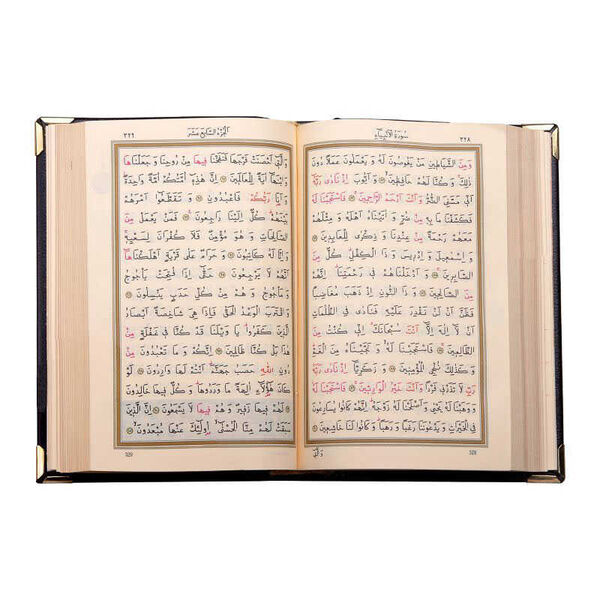 سُورَةُ الْاَنْبِيَاءِ ٣٢٨
وَمِنَ الشَّيَاطِينِ مَنْ يَغُوصُونَ لَهُ وَيَعْمَلُونَ عَمَلًا دُونَ
ذٰلِكَ وَكُنَّا لَهُمْ حَافِظِينَ ۝ وَاَيُّوبَ اِذْ نَادٰى رَبَّهُ
اَنِّي مَسَّنِيَ الضُّرُّ وَاَنْتَ اَرْحَمُ الرَّاحِمِينَ ۝ فَاسْتَجَبْنَا لَهُ
فَكَشَفْنَا مَا بِهِ مِنْ ضُرٍّ وَاٰتَيْنَاهُ اَهْلَهُ وَمِثْلَهُمْ
مَعَهُمْ رَحْمَةً مِنْ عِنْدِنَا وَذِكْرٰى لِلْعَابِدِينَ ۝
وَاِسْمٰعِيلَ وَاِدْرِيسَ وَذَا الْكِفْلِ كُلٌّ مِنَ
الصَّابِرِينَ ۝ وَاَدْخَلْنَاهُمْ فِي رَحْمَتِنَا اِنَّهُمْ
مِنَ الصَّالِحِينَ ۝ وَذَا النُّونِ اِذْ ذَهَبَ مُغَاضِبًا
فَظَنَّ اَنْ لَنْ نَقْدِرَ عَلَيْهِ فَنَادٰى فِي الظُّلُمَاتِ
اَنْ لَا اِلٰهَ اِلَّا اَنْتَ سُبْحَانَكَ اِنِّي كُنْتُ مِنَ
الظَّالِمِينَ ۝ فَاسْتَجَبْنَا لَهُ وَنَجَّيْنَاهُ مِنَ الْغَمِّ
وَكَذٰلِكَ نُنْجِي الْمُؤْمِنِينَ ۝ وَزَكَرِيَّا اِذْ نَادٰى رَبَّهُ
رَبِّ لَا تَذَرْنِي فَرْدًا وَاَنْتَ خَيْرُ الْوَارِثِينَ ۝ فَاسْتَجَبْنَا لَهُ
وَوَهَبْنَا لَهُ يَحْيٰى وَاَصْلَحْنَا لَهُ زَوْجَهُ اِنَّهُمْ كَانُوا يُسَارِعُونَ
فِي الْخَيْرَاتِ وَيَدْعُونَنَا رَغَبًا وَرَهَبًا وَكَانُوا لَنَا خَاشِعِينَ ۝
وَالَّتِي
328
٣٢٩ اَلْجُزْءُ السَّابِعَ عَشَرَ
وَالَّتِي اَحْصَنَتْ فَرْجَهَا فَنَفَخْنَا فِيهَا مِنْ رُوحِنَا وَجَعَلْنَاهَا
وَابْنَهَا اٰيَةً لِلْعَالَمِينَ ۝ اِنَّ هٰذِهِ اُمَّتُكُمْ اُمَّةً وَاحِدَةً
وَاَنَا رَبُّكُمْ فَاعْبُدُونِ ۝ وَتَقَطَّعُوا اَمْرَهُمْ
بَيْنَهُمْ كُلٌّ اِلَيْنَا رَاجِعُونَ ۝ فَمَنْ يَعْمَلْ مِنَ
الصَّالِحَاتِ وَهُوَ مُؤْمِنٌ فَلَا كُفْرَانَ لِسَعْيِهِ
وَاِنَّا لَهُ كَاتِبُونَ ۝ وَحَرَامٌ عَلٰى قَرْيَةٍ اَهْلَكْنَاهَا
اَنَّهُمْ لَا يَرْجِعُونَ ۝ حَتّٰى اِذَا فُتِحَتْ يَأْجُوجُ
وَمَأْجُوجُ وَهُمْ مِنْ كُلِّ حَدَبٍ يَنْسِلُونَ ۝
وَاقْتَرَبَ الْوَعْدُ الْحَقُّ فَاِذَا هِيَ شَاخِصَةٌ اَبْصَارُ
الَّذِينَ كَفَرُوا يَا وَيْلَنَا قَدْ كُنَّا فِي غَفْلَةٍ مِنْ
هٰذَا بَلْ كُنَّا ظَالِمِينَ ۝ اِنَّكُمْ وَمَا تَعْبُدُونَ مِنْ
دُونِ اللّٰهِ حَصَبُ جَهَنَّمَ اَنْتُمْ لَهَا وَارِدُونَ ۝ لَوْ
كَانَ هٰؤُلَاءِ اٰلِهَةً مَا وَرَدُوهَا وَكُلٌّ فِيهَا خَالِدُونَ
لَهُمْ فِيهَا زَفِيرٌ وَهُمْ فِيهَا لَا يَسْمَعُونَ ۝ اِنَّ الَّذِينَ
سَبَقَتْ لَهُمْ مِنَّا الْحُسْنٰى اُولٰئِكَ عَنْهَا مُبْعَدُونَ ۝
329